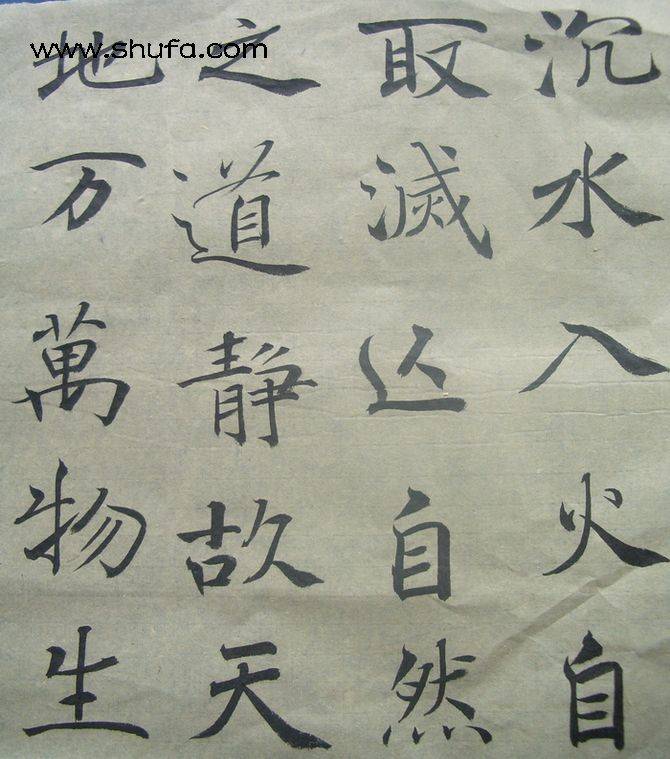 www.shufa.com
沉水入火自
取滅亾自然
之道靜故天
地万萬物生